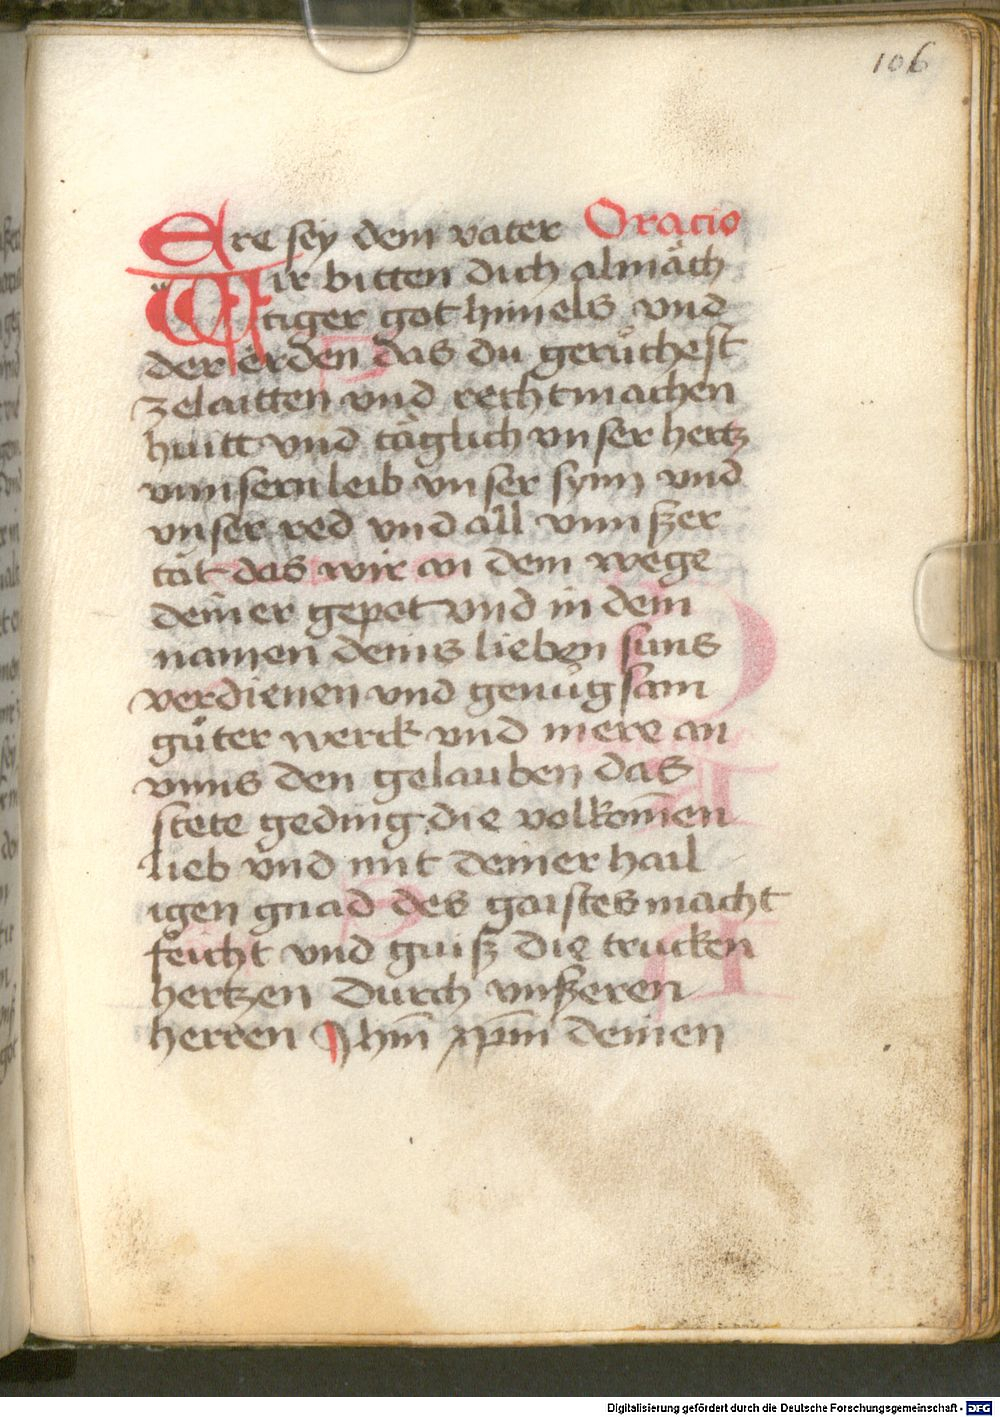 106
Ere sey dem vater Oracio
Wir bitten dich almäch
tiger got himels vnd
der erden das du gerůchest
zelaitten vnd rechtmachen
huitt vnd täglich vnser hertz
vnnsern leib vnser synn vnd
vnser red vnd all vnnszer
tät das wir an dem wege
deiner gepot vnd in dem
namen deins lieben suns
verdienen vnd genůgsam
gůter werck vnd mere an
vnns den gelauben das
stete geding die volkom̄en
lieb vnd mit deiner hail
igen gnad des gaistes macht
feicht vnd guisz die trucken
hertzen durch vnszeren
herren Jhm̄ xpm̄ deinen
Digitalisierung gefördert durch die Deutsche Forschungsgemeinschaft - DFG